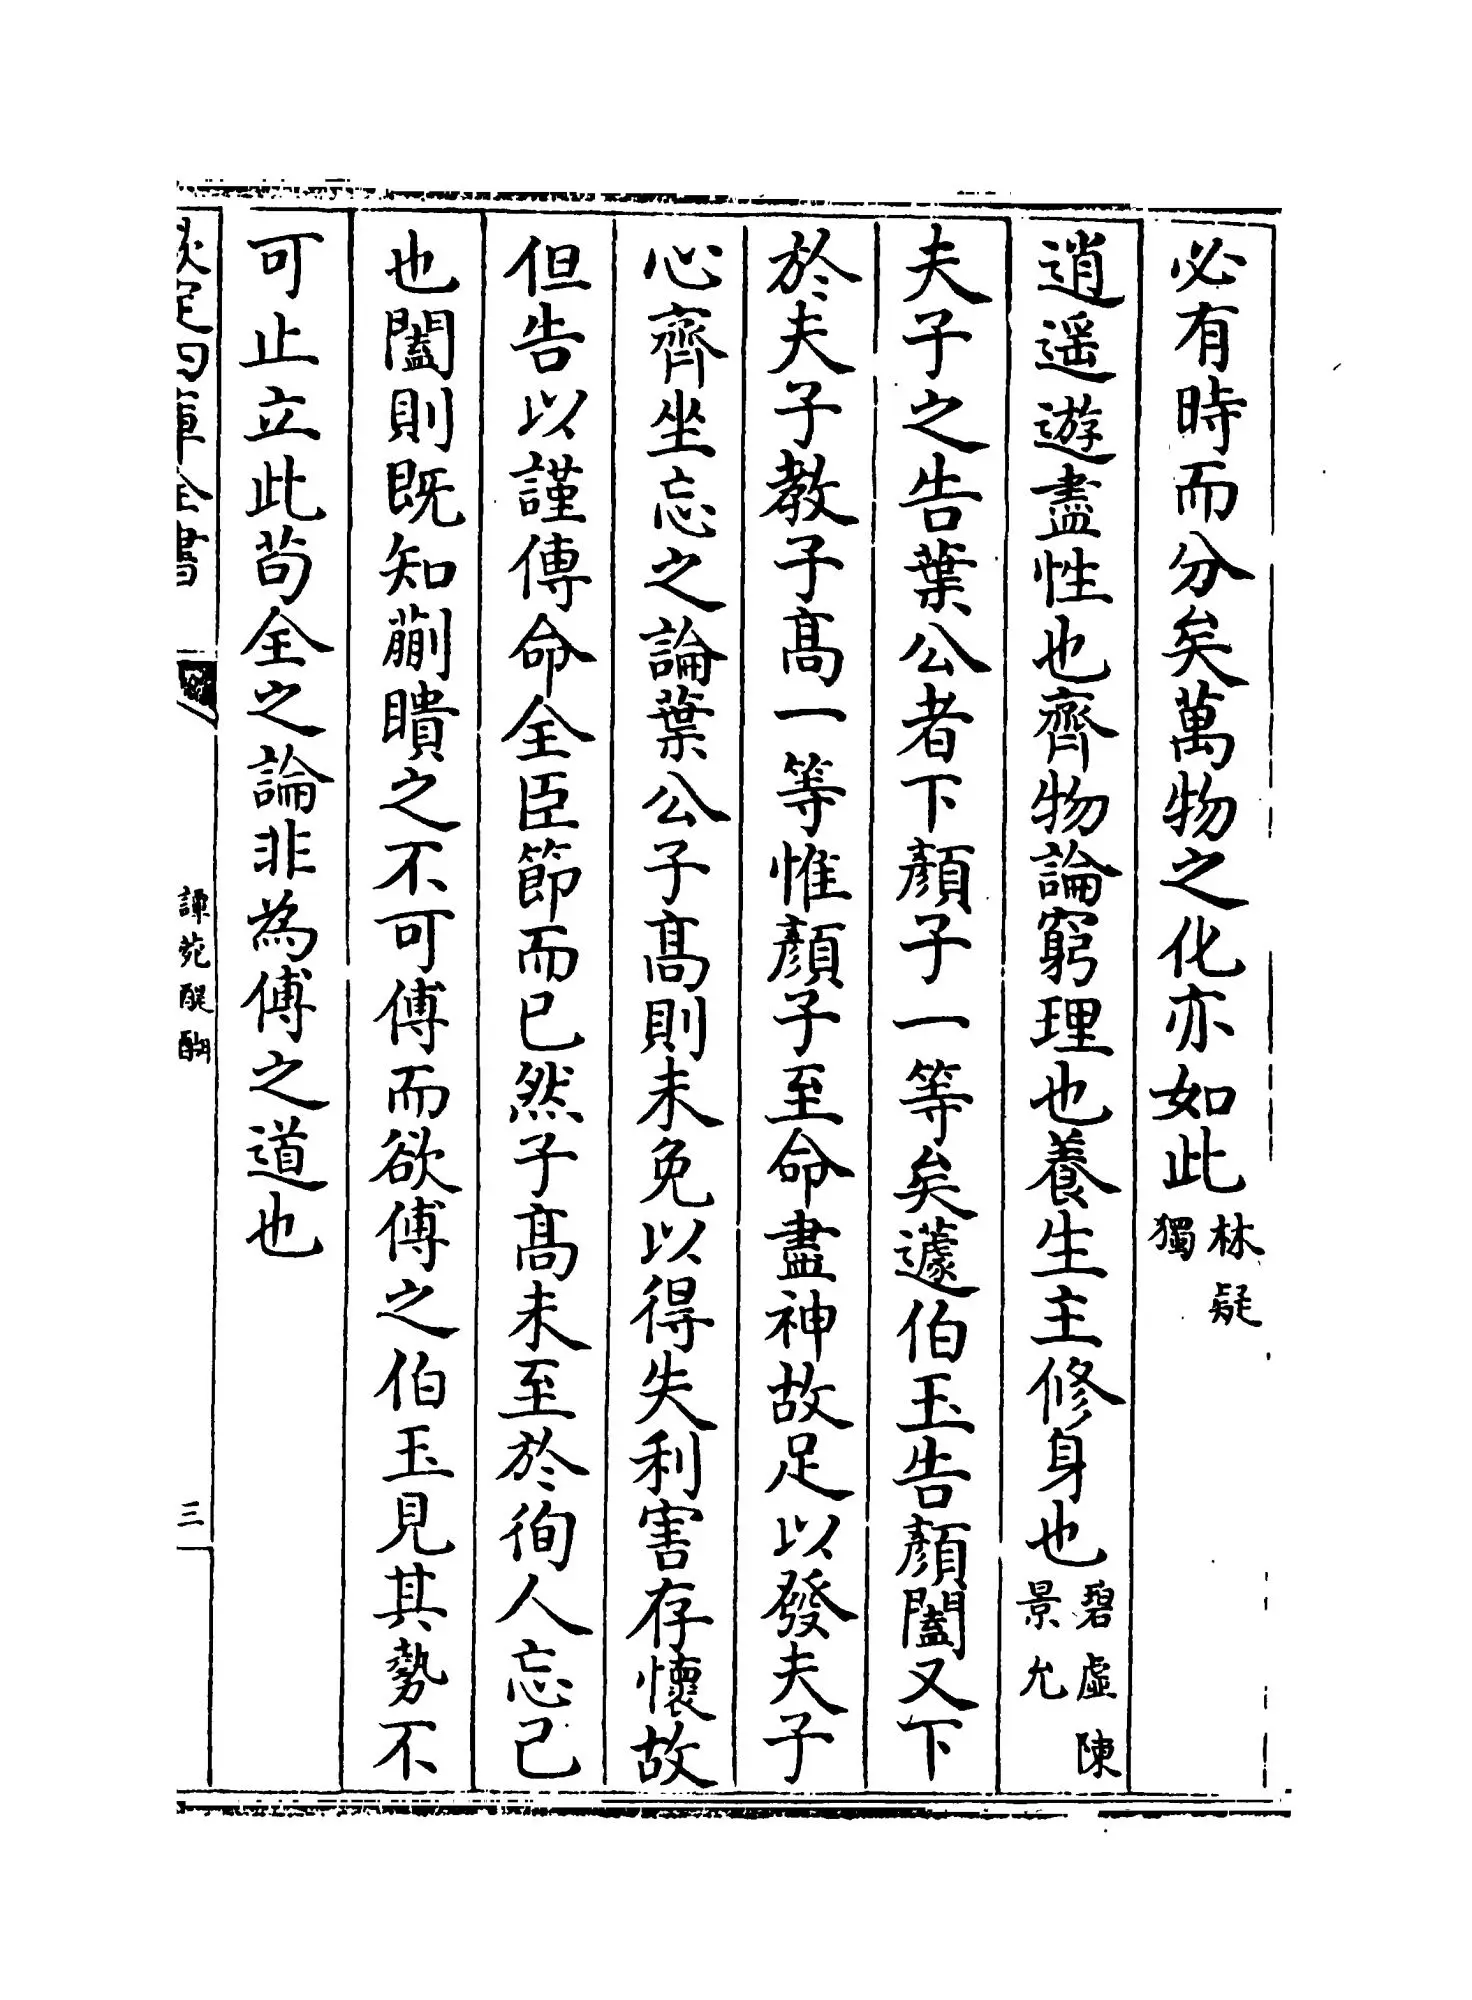 必有時而分矣萬物之化亦如此林疑獨
逍遥遊盡性也齊物論窮理也養生主修身也碧虚陳景允
夫子之告葉公者下顔子一等矣蘧伯玉告顔闔又下
於夫子教子髙一等惟顔子至命盡神故足以發夫子
心齊坐忘之論葉公子髙則未免以得失利害存懷故
但告以謹傳命全臣節而已然子髙未至於徇人忘己
也闔則既知蒯聵之不可傅而欲傅之伯玉見其勢不
可止立此茍全之論非為傅之道也
欽定四庫全書
譚苑醍醐
三